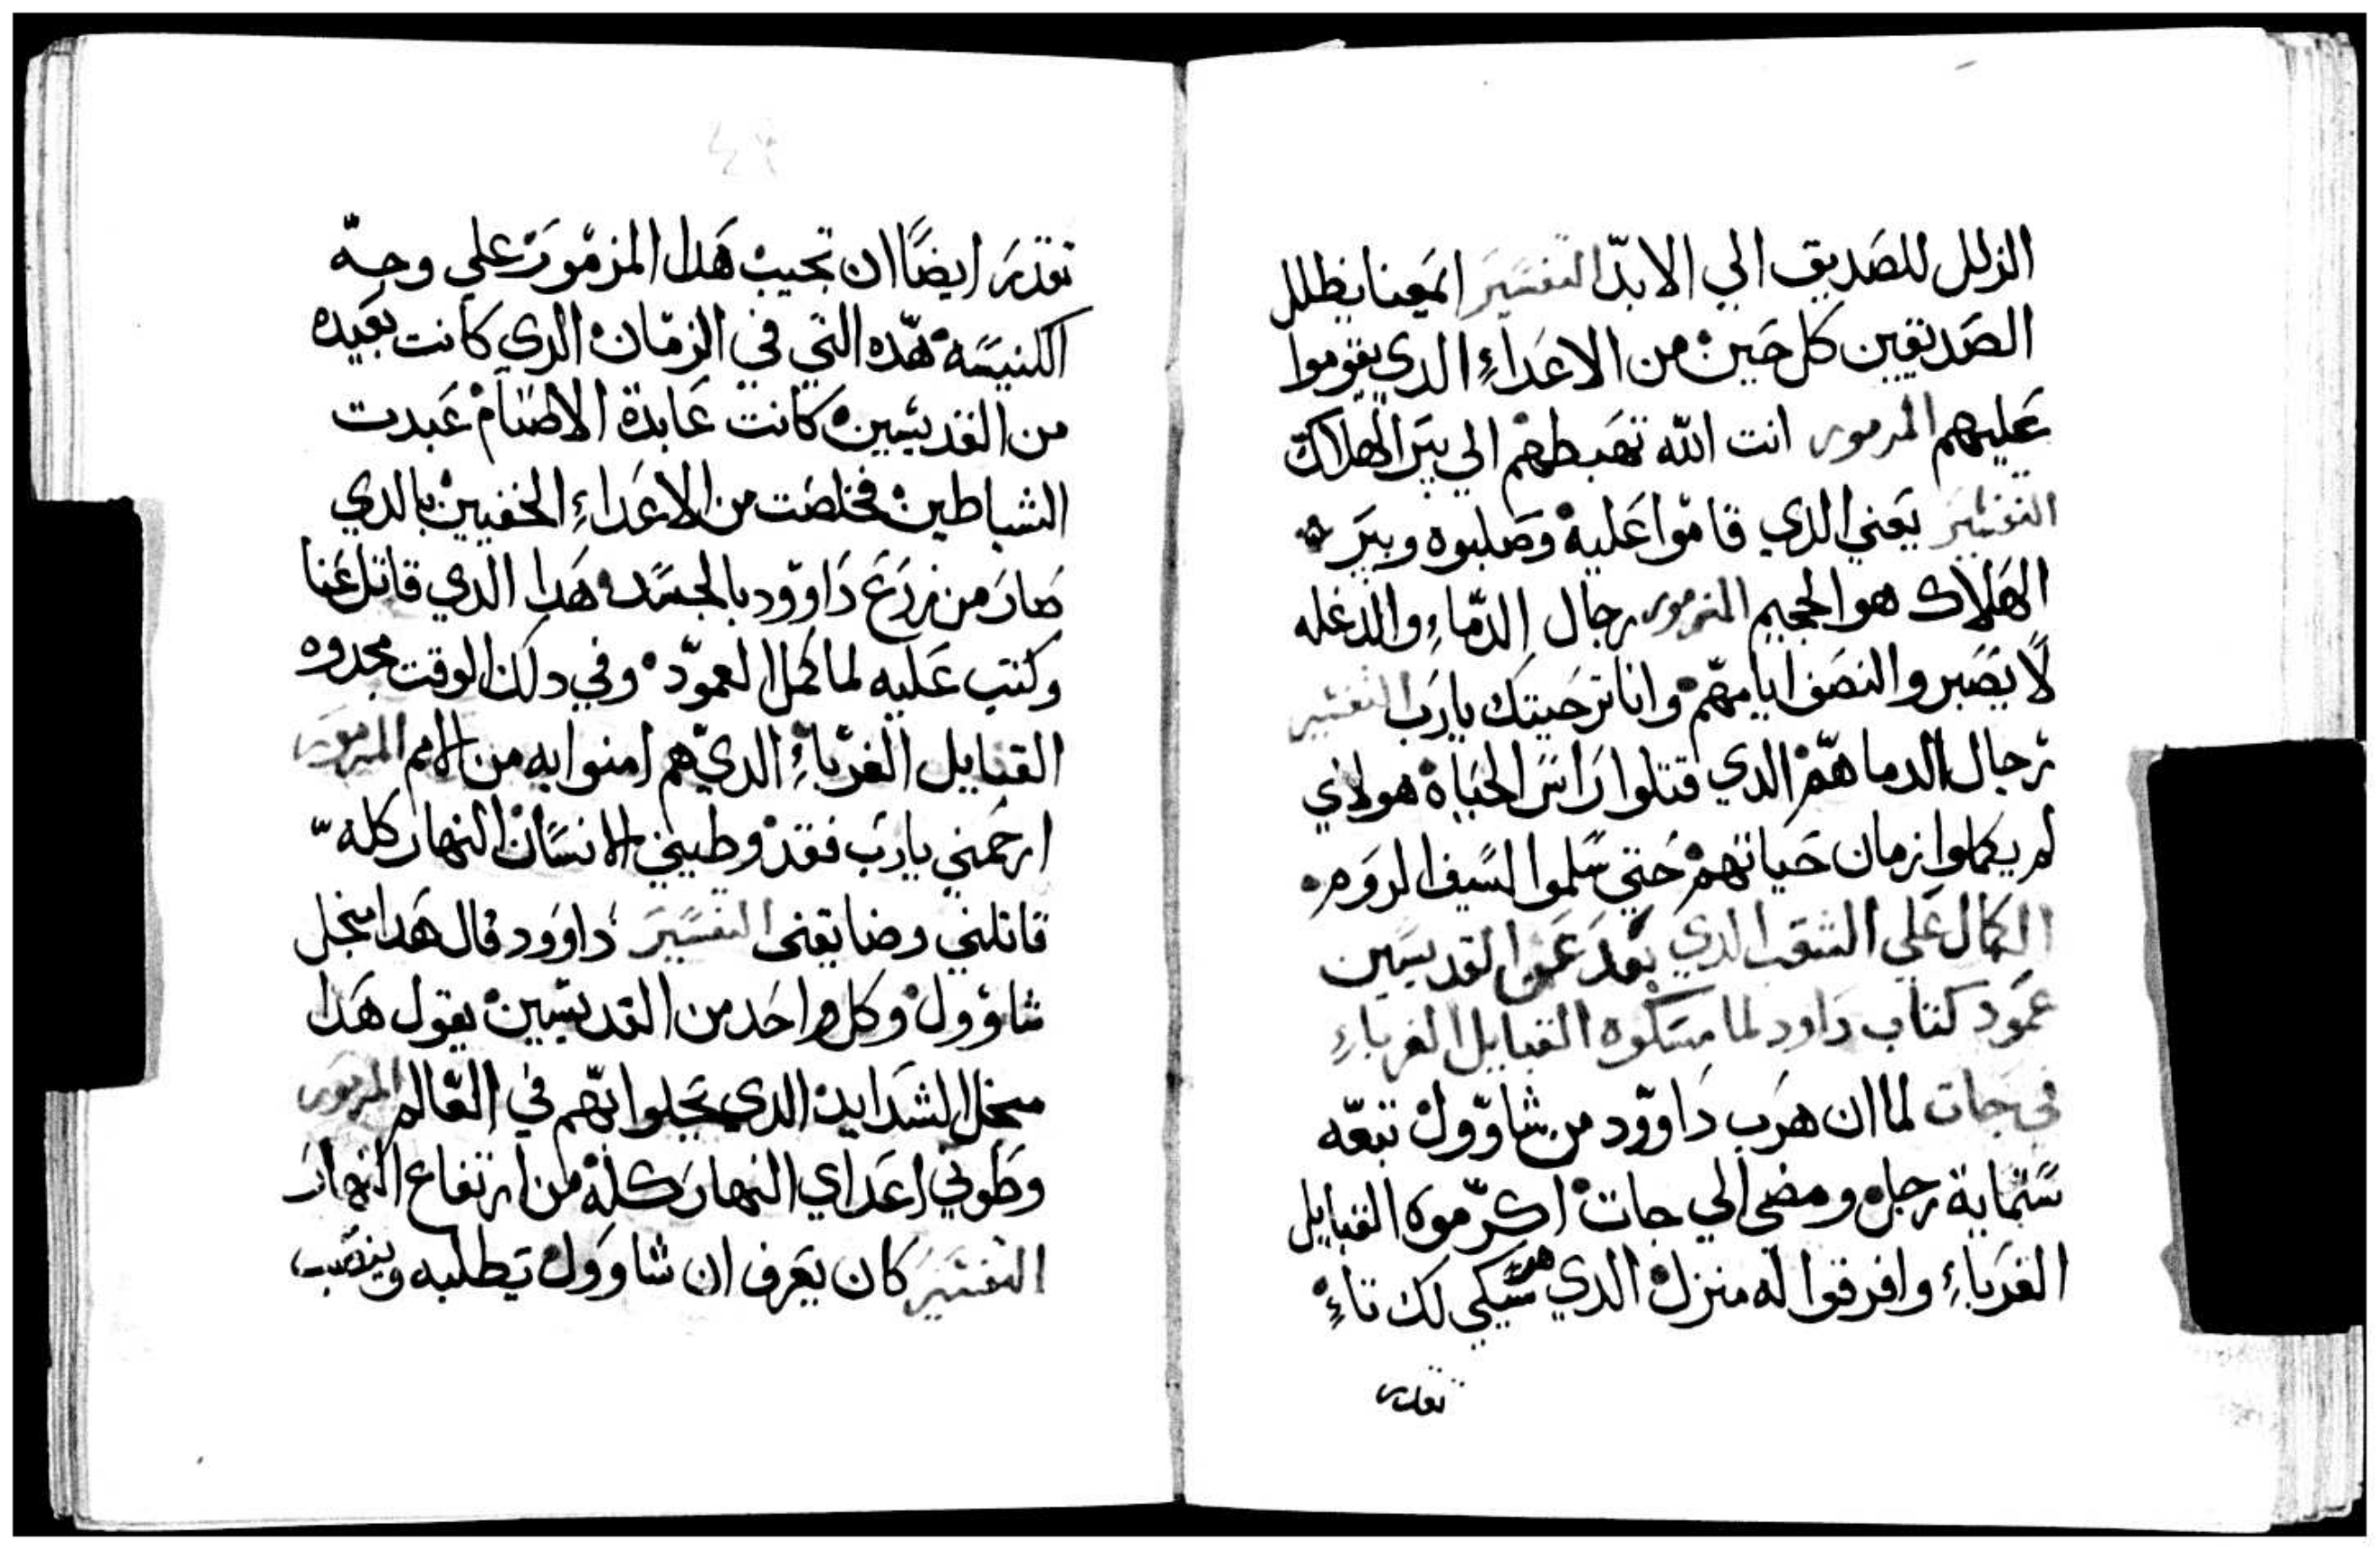 الزلل للصديق الي الابد التفسير المعنا يظلل
الصديقين كل حين من الاعداء الدي يقوموا
عليهم المزمور انت الله تهبطهم الي بير الهلاك
التفسير يعني الدي قاموا عليه وصلبوه وبير
الهلاك هو الجحيم المزمور رجال الدماء والدغله
لا يصير والنصف ايامهم وانا ترحيتك يارب التفسير
رجال الدما هم الدي قتلوا راس الحياة هولاي
لم يكملوا زمان حياتهم حتي سلموا لسيف الروم
الكمال علي الشعب الدي بعد عن القديسين
عمود كتاب داود لما مسكوه القبايل الغرباء
في جات لما ان هرب داوود من شاوول تبعه
ستماية رجل ومضي الي جات اكرموه القبايل
الغرباء وافرقوا له منزل الدي سيكي لك تاء
نقدر
٤٩
نقدر ايضا ان نجيب هدا المزمور علي وجه
الكنيسه هده التي في الزمان الدي كانت بعيده
من القديسين كانت عابدة الاصنام عبدت
الشياطين فخلصت من الاعداء الخفيين بالدي
صار من زرع داوود بالجسد هدا الدي قاتل عنا
وكتب عليه لما كمل العمود وفي دلك الوقت مجدوه
القبايل الغرباء الدي هم امنوا به من الامم المزمور
ارحمني يارب فقد وطيني الانسان النهار كله
قاتلني وضايقني التفسير داوود قال هدا منجل
شاوول وكل واحد من القديسين يقول هدا
منجل الشدايد الدي تجلوا بهم في العالم المزمور
وطوني اعداي النهار كله من ارتفاع النهار
التفسير كان يعرف ان شاوول يطلبه وينصب